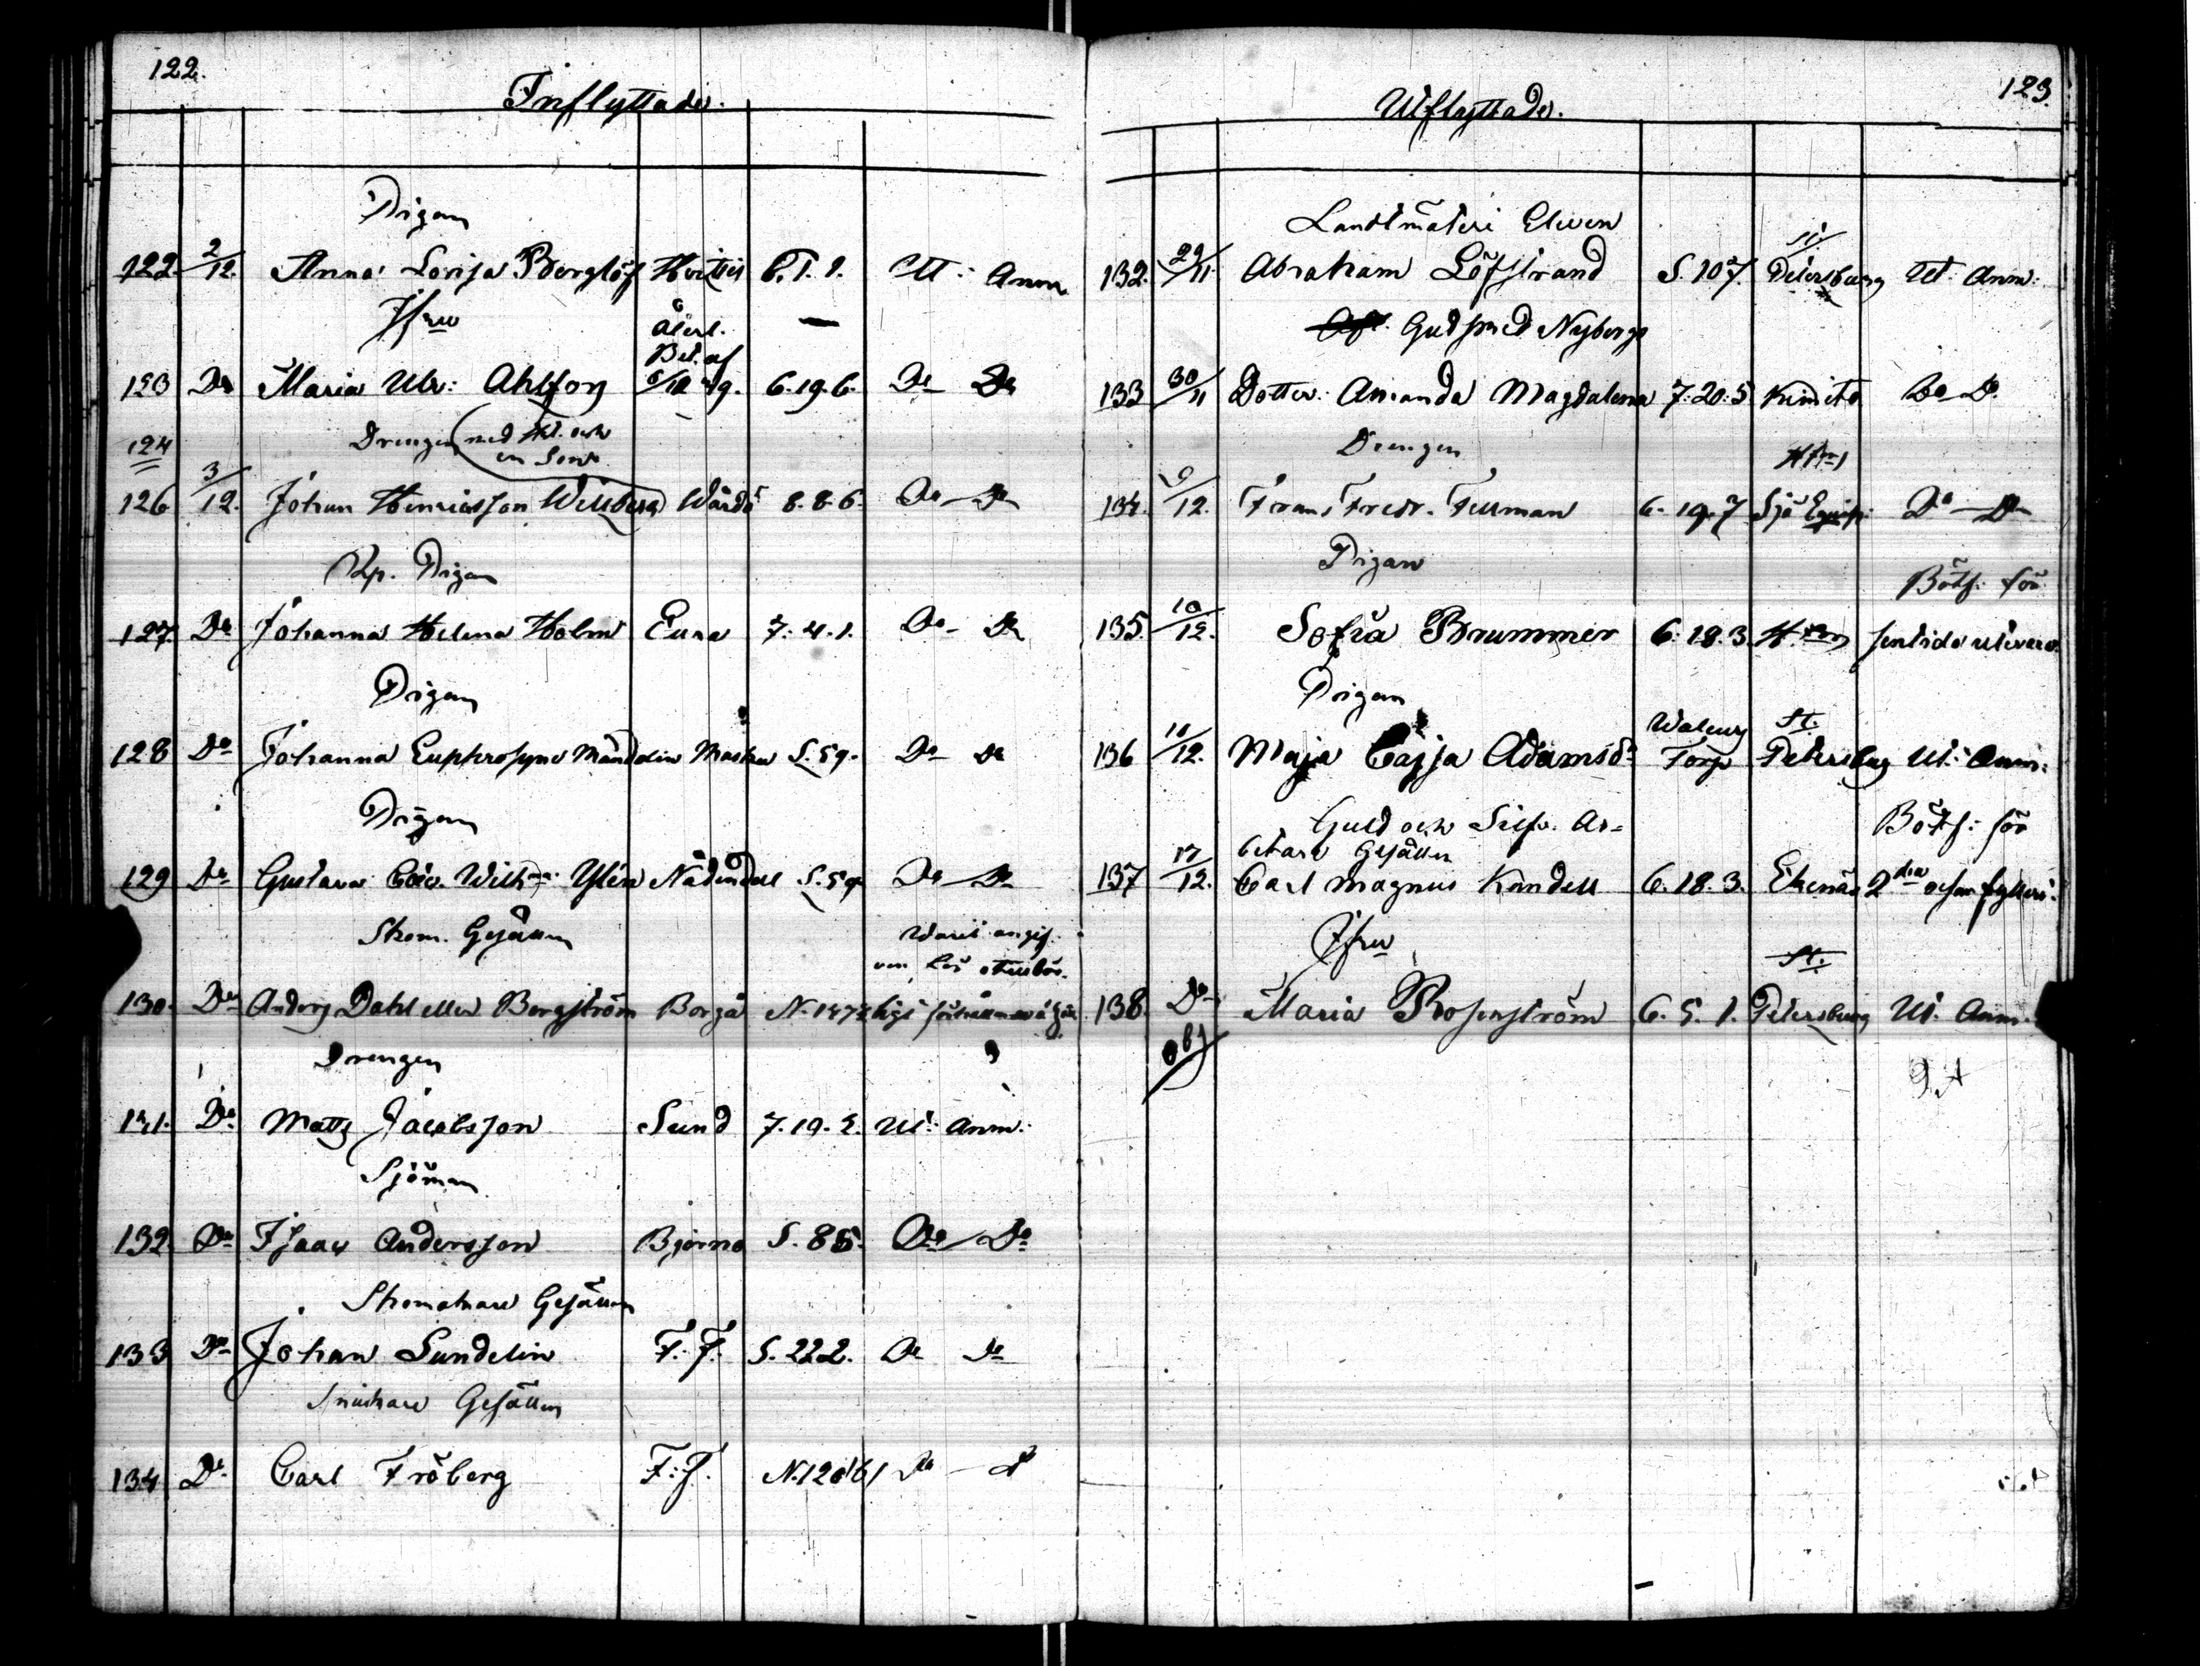 122.
Inflyttade.
Pigan
122. 2/12. Anna Lovisa Bergløf Hvittis 6.1.1. Ut. Anm.
Jfru
återl.
Bet. af
123 Do Maria Ulr: Ahlfors 6/10 6.19.6. Do Do
124 Drengen med Hu. och
en Son
126 3/12. Johan Henricsson Willberg Wårdö 8.8.6. Do Do
Pigan
127. Do Johanna Helena Holm Eura 7.4.1. Do Do
Pigan
128 Do Johanna Euphrosyne Mandelin Masku S. 59. Do Do
Pigan
129 Do Gustava Wilhna Ylén Nådendal S. 59. Do Do
Skom. Gesällen
130. Do Anders Dahl eller Bergström Borgå
Drengen
131. Do Matts Jacobsson Sund 7.19.2. Ut: Anm:
Sjöman
132. Do Isaac Andersson Bjerno S. 85. Do Do
Skomakare Gesällen
133 Do Johan Sundelin F. F. S. 222. Do Do
Snickare Gesällen
134 Do Carl Fröberg F. F. Do Do
123.
Utflyttade.
Landtmäteri Eleven
St.
132. 29/11 Abraham Löfstrand S. 107. Petersburg Ut. Anm:
Gudfried Nybergs
133 30/11 Dotter. Amanda Magdalena 7.20.5 Kimito Do Do
Drengen
Hfors
134. 9/12. Frans Fredr. Fellman 6.19.7 Sjö Equip. Do Do
Pigan
Böth: för
135. 10/12. Sofia Brummer 6.18.3. Hfors
Pigan
St.
136 11/12. Maja Cajsa Adamsdr Torp Petersburg Ut: Anm:
Guld och Silfv. Ar=
Böth: för
betare Gesällen
137 17/12. Carl Magnus Kandell 6.18.3. Ekenäs 2dra fylleri.
Jfru
St.
138. Do Maria Rosenström 6.5.1. Petersburg Ut. Anm.